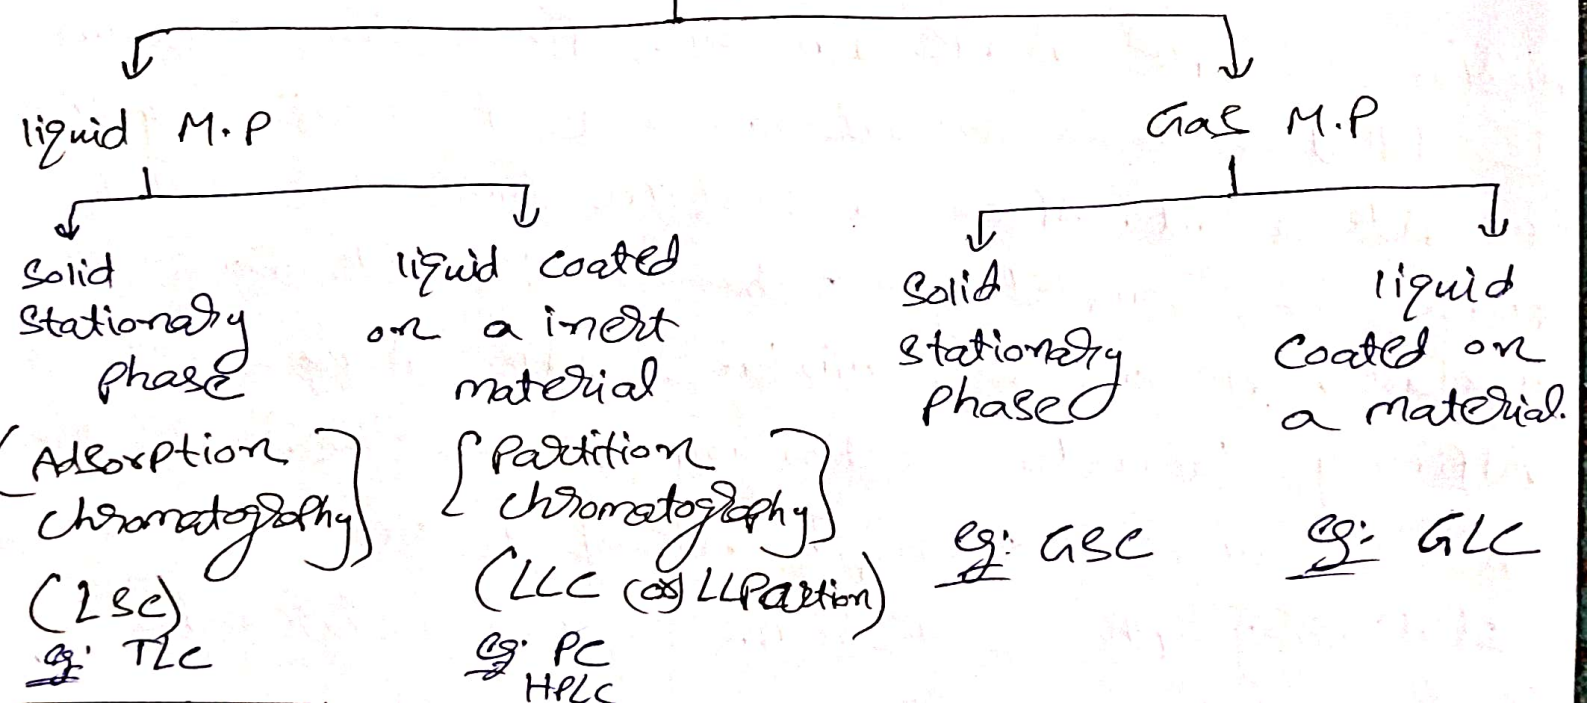 liquid M.P
Gas M.P
Solid
Stationary
phase
(Adsorption
chromatography]
(LSC)
eg: TLC
liquid coated
on a inert
material
[Partition
chromatography]
(LLC (or) LLPartion)
eg: PC
HPLC
Solid
Stationary
phase
eg: GSC
liquid
coated on
a material.
eg: GLC